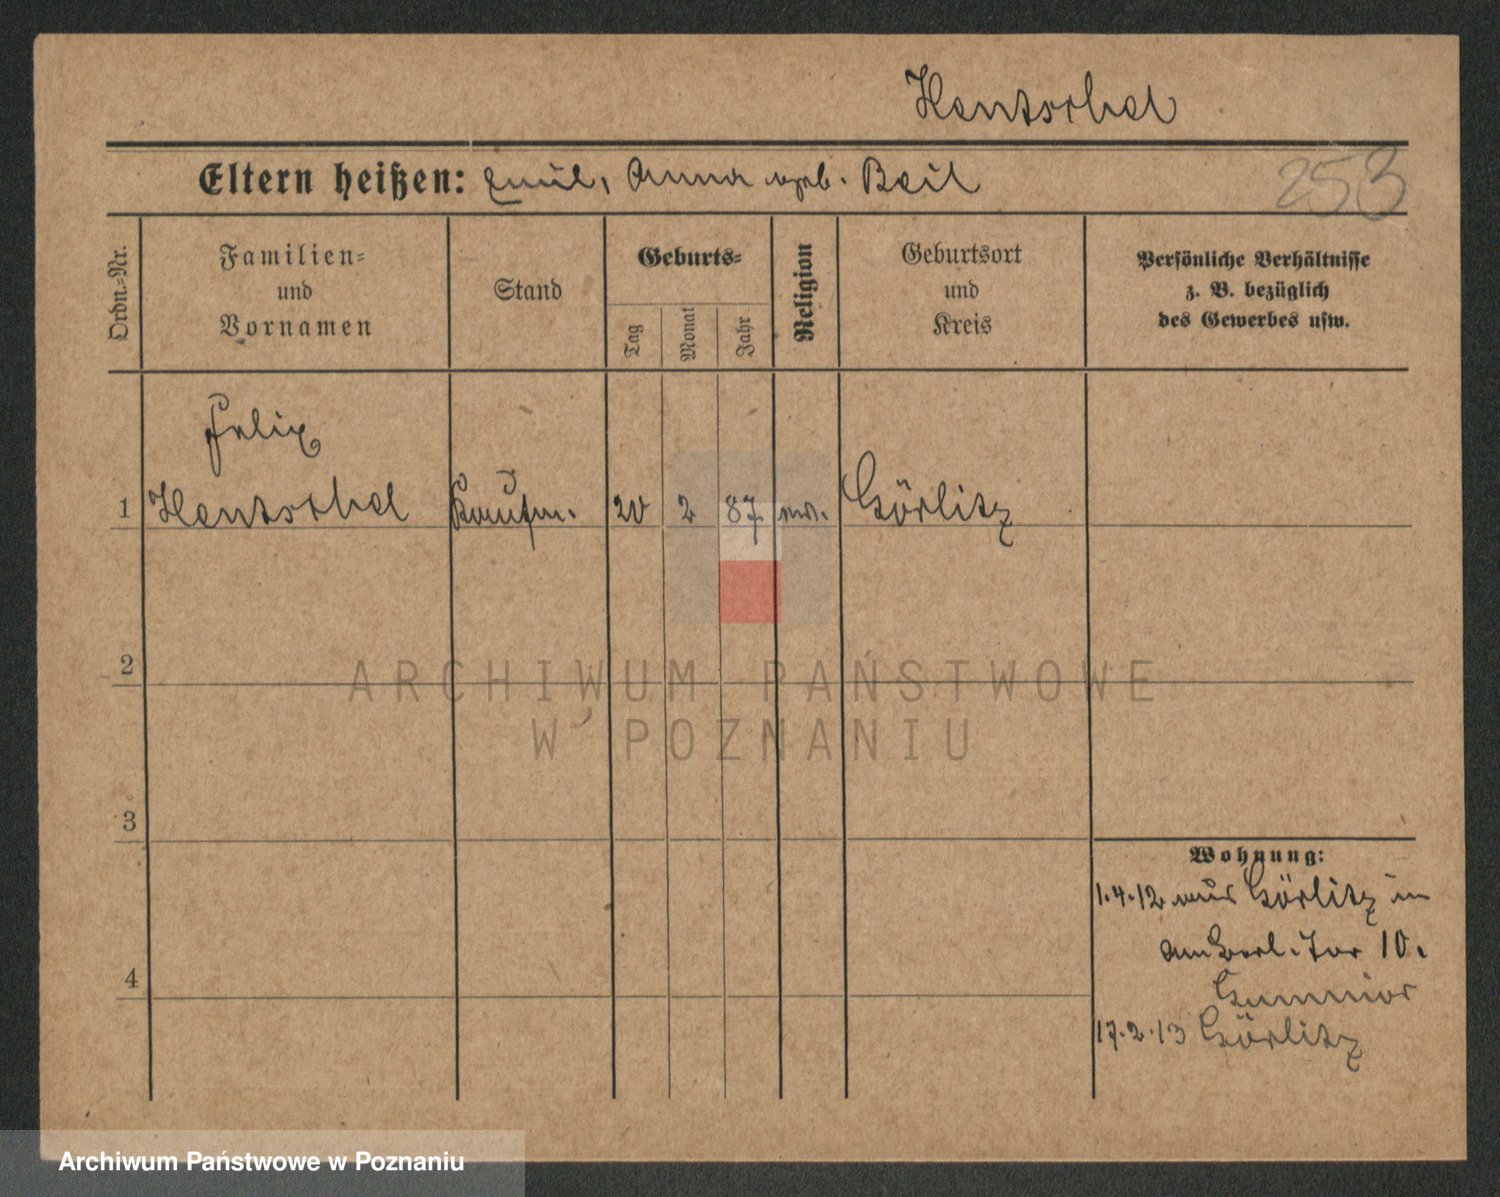 Hentschel
Eltern heißen: Emil, Anna geb. Beil
253
Ordn.-Nr.
Familien-
und
Vornamen
Stand
Geburts-
Tag
Monat
Jahr
Religion
Geburtsort
und
Kreis
Persönliche Verhältnisse
z. B. bezüglich
des Gewerbes usw.
Felix
1 Hentschel Kaufm. 20 2 87 ev. Görlitz
2
3
4
Wohnung:
1.4.12 aus Görlitz in
Am Berl. Tor 10.
17.2.13 Görlitz
ARCHIWUM PAŃSTWOWE
W POZNANIU
Archiwum Państwowe w Poznaniu